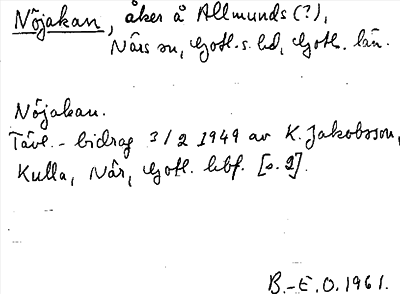 Nöjakan, åker å Allmunds (?),
Närs sn, Gotl. s. hd, Gotl. län.
Nöjakan.
Tävl.-bidrag 3/2 1949 av K. Jakobsson,
Kulla, När, Gotl. hbf. [s. 2].
B.-E. O. 1961.